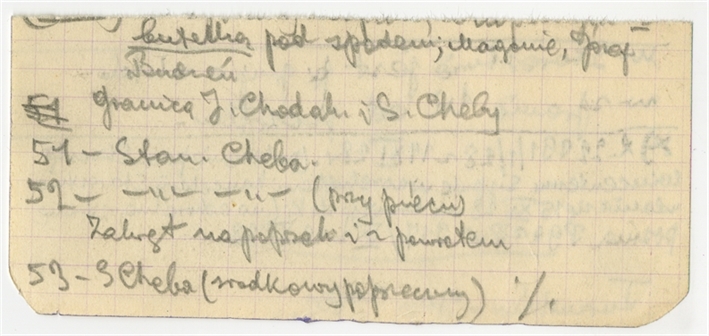 butelka pod spodem; Magonie, Graj-
Budzeń
51 Granica J. Chodak. i S. Cheby
51 - Stan. Cheba.
52 - -"- -"- (przy piecu)
Zakręt na poprzek i z powrotem
53 - S Cheba (środkowy poprzeczny) ·/.